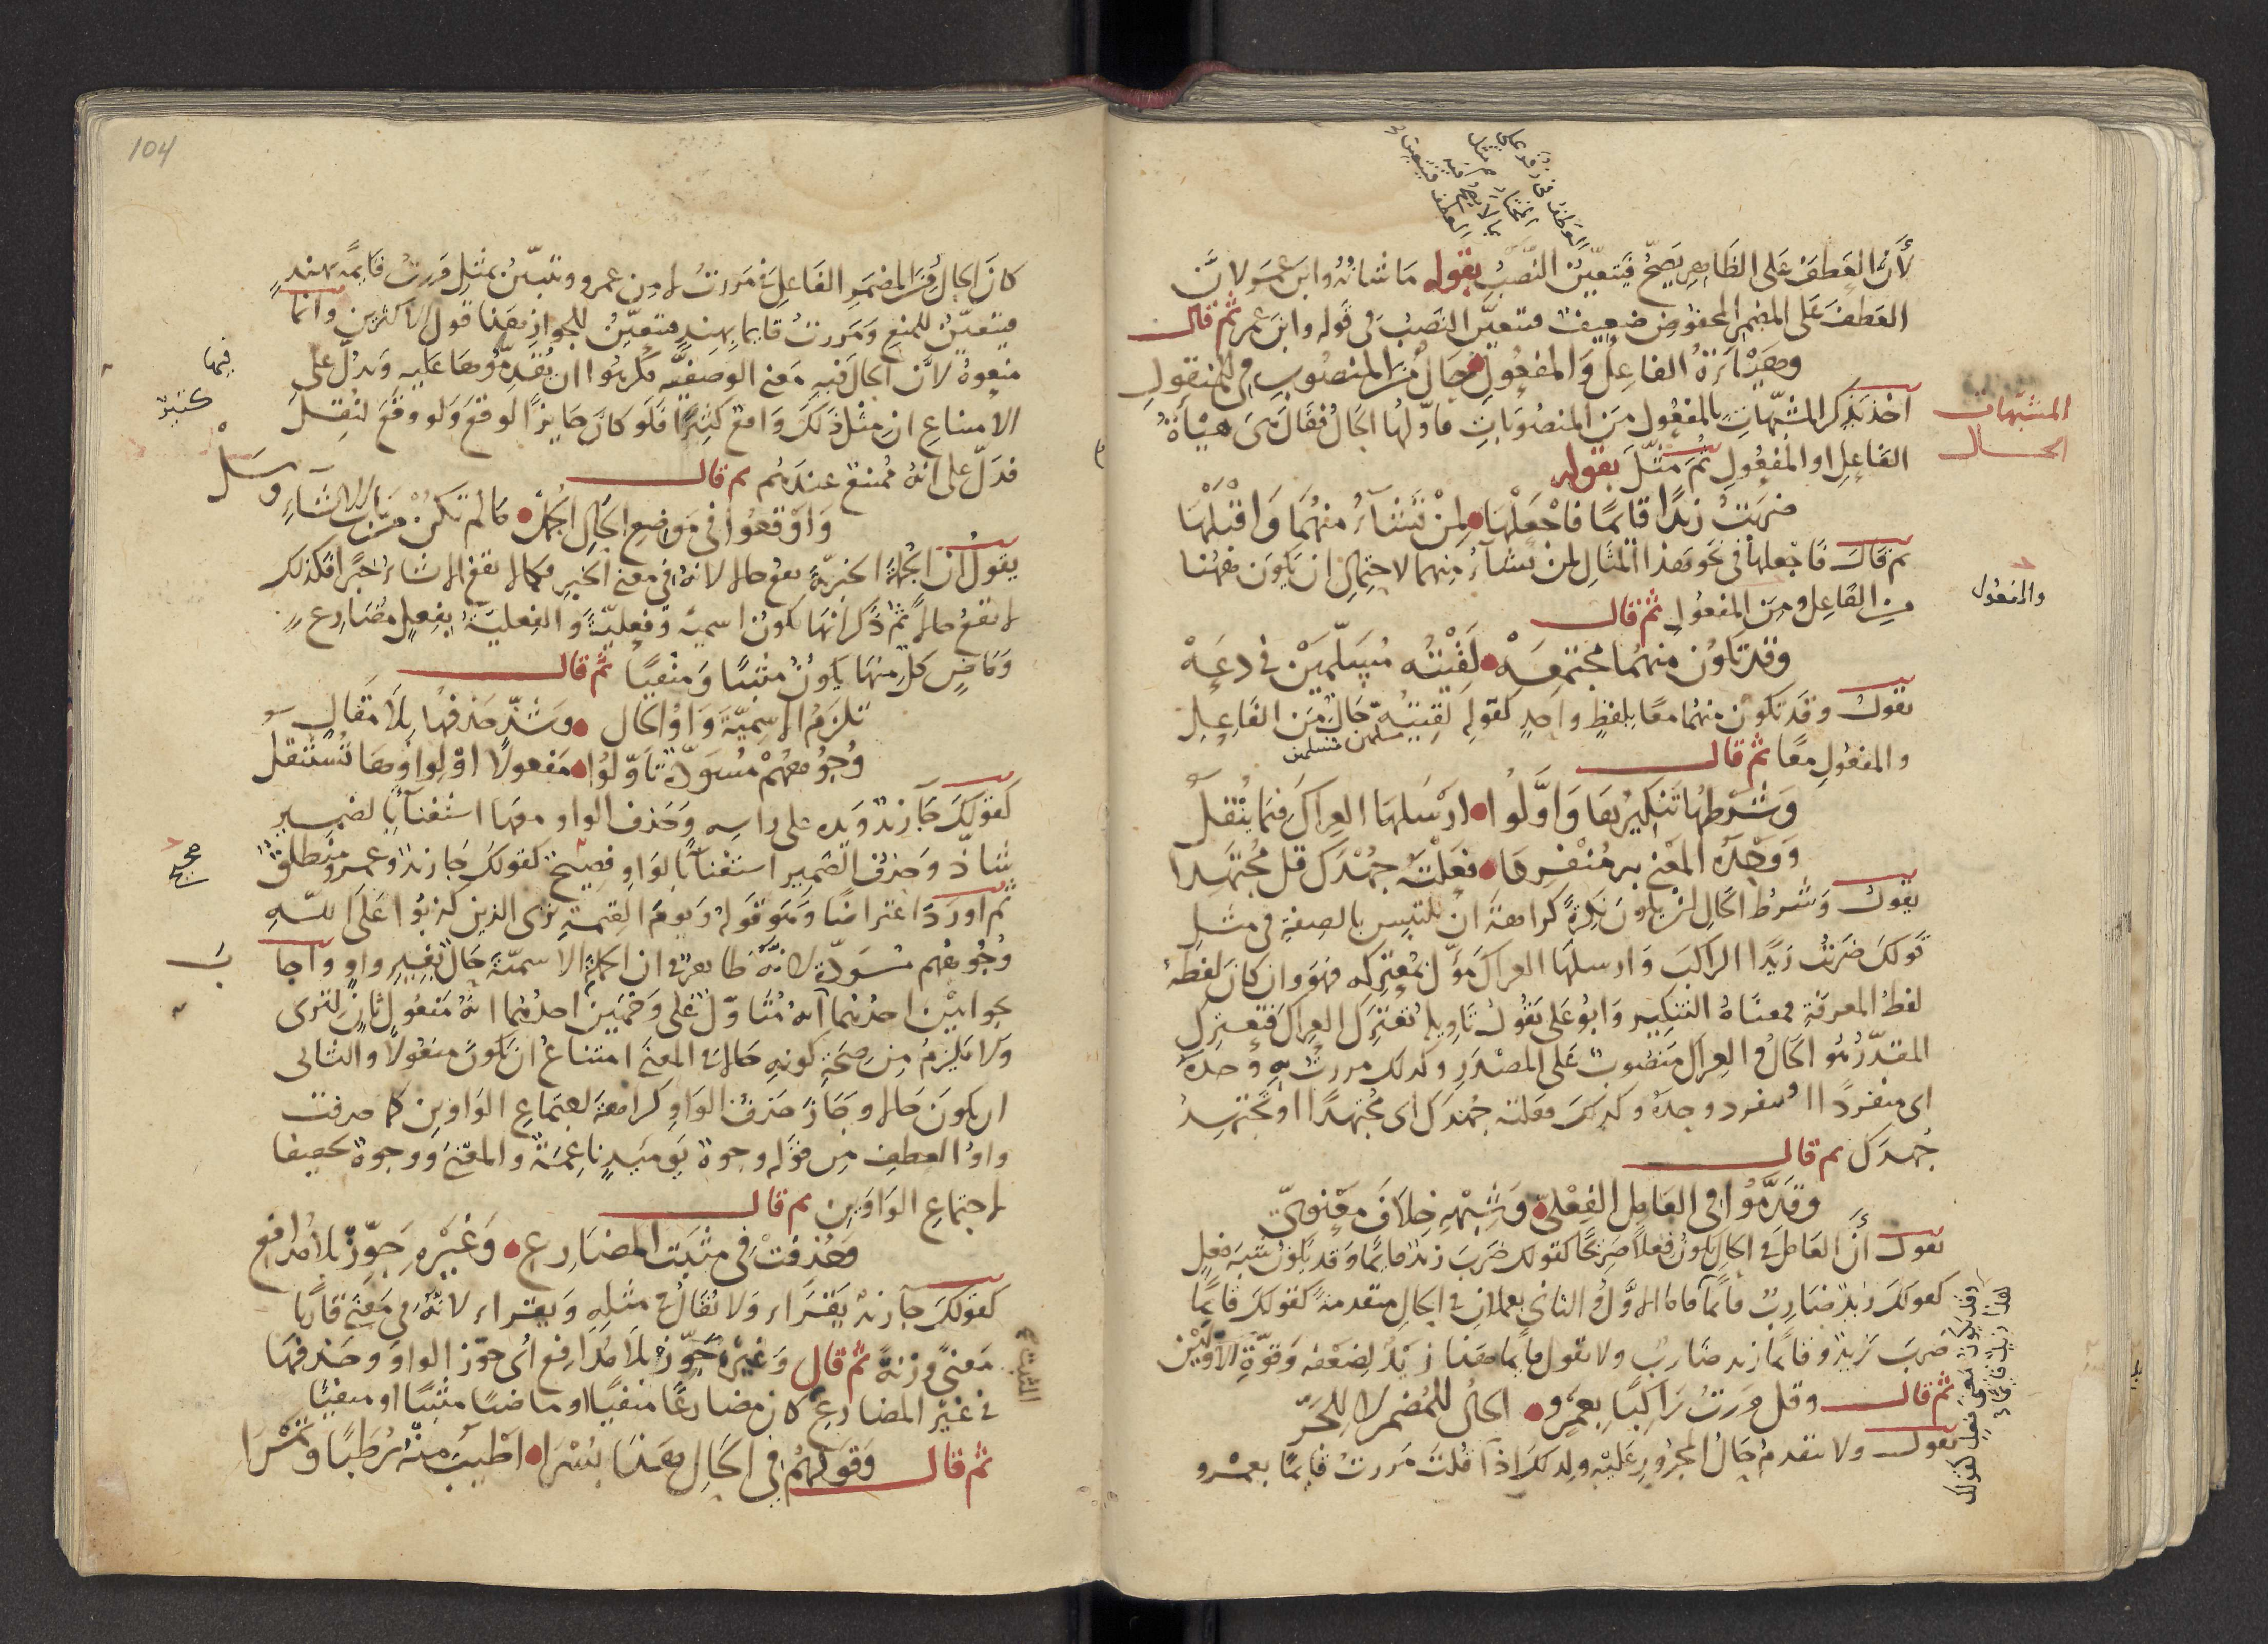 لأن العطف على الظاهر يصح فيتعين النصب بقوله ما شانه وابن عمر ولان
العطف على المضمر المخفوض ضعيف فتعين النصب في قوله وابن عمر ثم قال
وهيأة الفاعل والمفعول حال من المنصوب في المنقول
اخذ يذكر المشبهات بالمفعول من المنصوبات فأولها الحال فقال هي هيأة
المشبهات
الحال
الفاعل او المفعول ثم مثل بقوله
ضربت زيدا قايما فاجعلها لمن تشاء منهما واقبلها
ثم قال فاجعلها في نحو هذا المثال لمن تشاء منهما لاحتمال ان يكون ههنا
من الفاعل ومن المفعول ثم قال
والمفعول
وقد تكون منهما مجتمعه لقيته مسلمين في دعه
يقول وقد تكون منهما معا بلفظ واحد كقوله لقيته مسلمين حال من الفاعل
والمفعول معا ثم قال
وشرطها تنكيرها وأولوا ارسلها العراك فيما ينقل
ووحده المعني به منفردا فعلته جهدك قل مجتهدا
يقول وشرط الحال ان يكون نكرة كراهة ان يلتبس بالصفة في مثل
قولك ضربت زيدا الراكب وارسلها العراك مؤل بمعتركه فهو وان كان لفظه
لفظ المعرفة فمعناه التنكير وابو علي يقول تاويله تعترك العراك فتعترك
المقدر هو الحال والعراك منصوب على المصدر وكذلك مررت به وحده
اي منفردا او ينفرد وحده وكذلك فعلته جهدك اي مجتهدا او تجتهد
جهدك ثم قال
وقدموا في العامل الفعلي وشبهه خلاف معنوي
يقول أن العامل في الحال يكون فعلا صريحا كقولك ضرب زيد قايما وقد يكون شبه فعل
كقولك زيد ضارب قايما فالاول والثاني يعملان في الحال متقدمة كقولك قايما
ضرب زيد وقايما زيد ضارب ولا تقول قايما هذا زيد لضعفه وقوة الاولين
وقد يكون معنى فعل كقولك
هذا زيد قايما
ثم قال وقل مررت راكبا بعمرو الحال للمضمر لا للجر
يقول ولا يتقدم حال المجرور عليه ولذلك اذا قلت مررت قايما بعمرو
104
كان الحال من المضمر الفاعل في مررت لا من عمرو وتبين بمثل مررت قايمة بهند
متعين للمنع ومررت قايما بهند متعين للجواز هذا قول الاكثرين وانما
منعوه لان الحال فيه معنى الوصفية فكرهوا ان يقدموها عليه ويدل على
الامتناع ان مثل ذلك واقع كثيرا فلو كان جايزا لوقع ولو وقع لنقل
فدل على انه ممتنع عندهم ثم قال
واوقعوا في موضع الحال الجمل ما لم تكن من باب الانشاء وسل
يقول ان الجملة الخبرية تقع حالا لانه في معنى الخبر فكما لا يقع الانشاء خبرا فكذلك
لا يقع حالا ثم ذكر انها تكون اسمية وفعلية والفعلية بفعل مضارع
وماض كل منها يكون مثبتا ومنفيا ثم قال
تلزم الاسمية واو الحال وشذ حذفها بلا مقال
وجوههم مسودة تأولوا مفعولا او لواوها تستثقل
كقولك جا زيد ويده على راسه وحذف الواو معها استغنآ بالضمير
شاذ وحذف الضمير استغنآ بالواو فصيح كقولك جا زيد وعمرو منطلق
ثم اورد اعتراضا وهو قوله ويوم القيمة ترى الذين كذبوا على الله
وجوههم مسودة لانه ظاهر في ان الجملة الاسمية حال بغير واو واجا
ب
بجوابين احدهما انه متاول على وجهين احدهما انه مفعول ثان لترى
ولا يلزم من صحة كونه حالا في المعنى امتناع ان يكون مفعولا والثاني
ان يكون حالا وجاز حذف الواو كراهة اجتماع الواوين كما حذفت
واو العطف من قوله وجوه يوميذ ناعمة والمعنى ووجوه تخفيفا
لاجتماع الواوين ثم قال
وحذفت في مثبت المضارع وغيره جوز بلا مدافع
كقولك جا زيد يقراء ولا يقال في مثله ويقراء لانه في معنى قاريا
معنى وزنة ثم قال وغيره جوز بلا مدافع أي جوز الواو وحذفها
المثبت
في غير المضارع كان مضارعا منفيا او ماضيا مثبتا او منفيا
ثم قال وقولهم في الحال هذا بسرا اطيب منه رطبا وتمرا